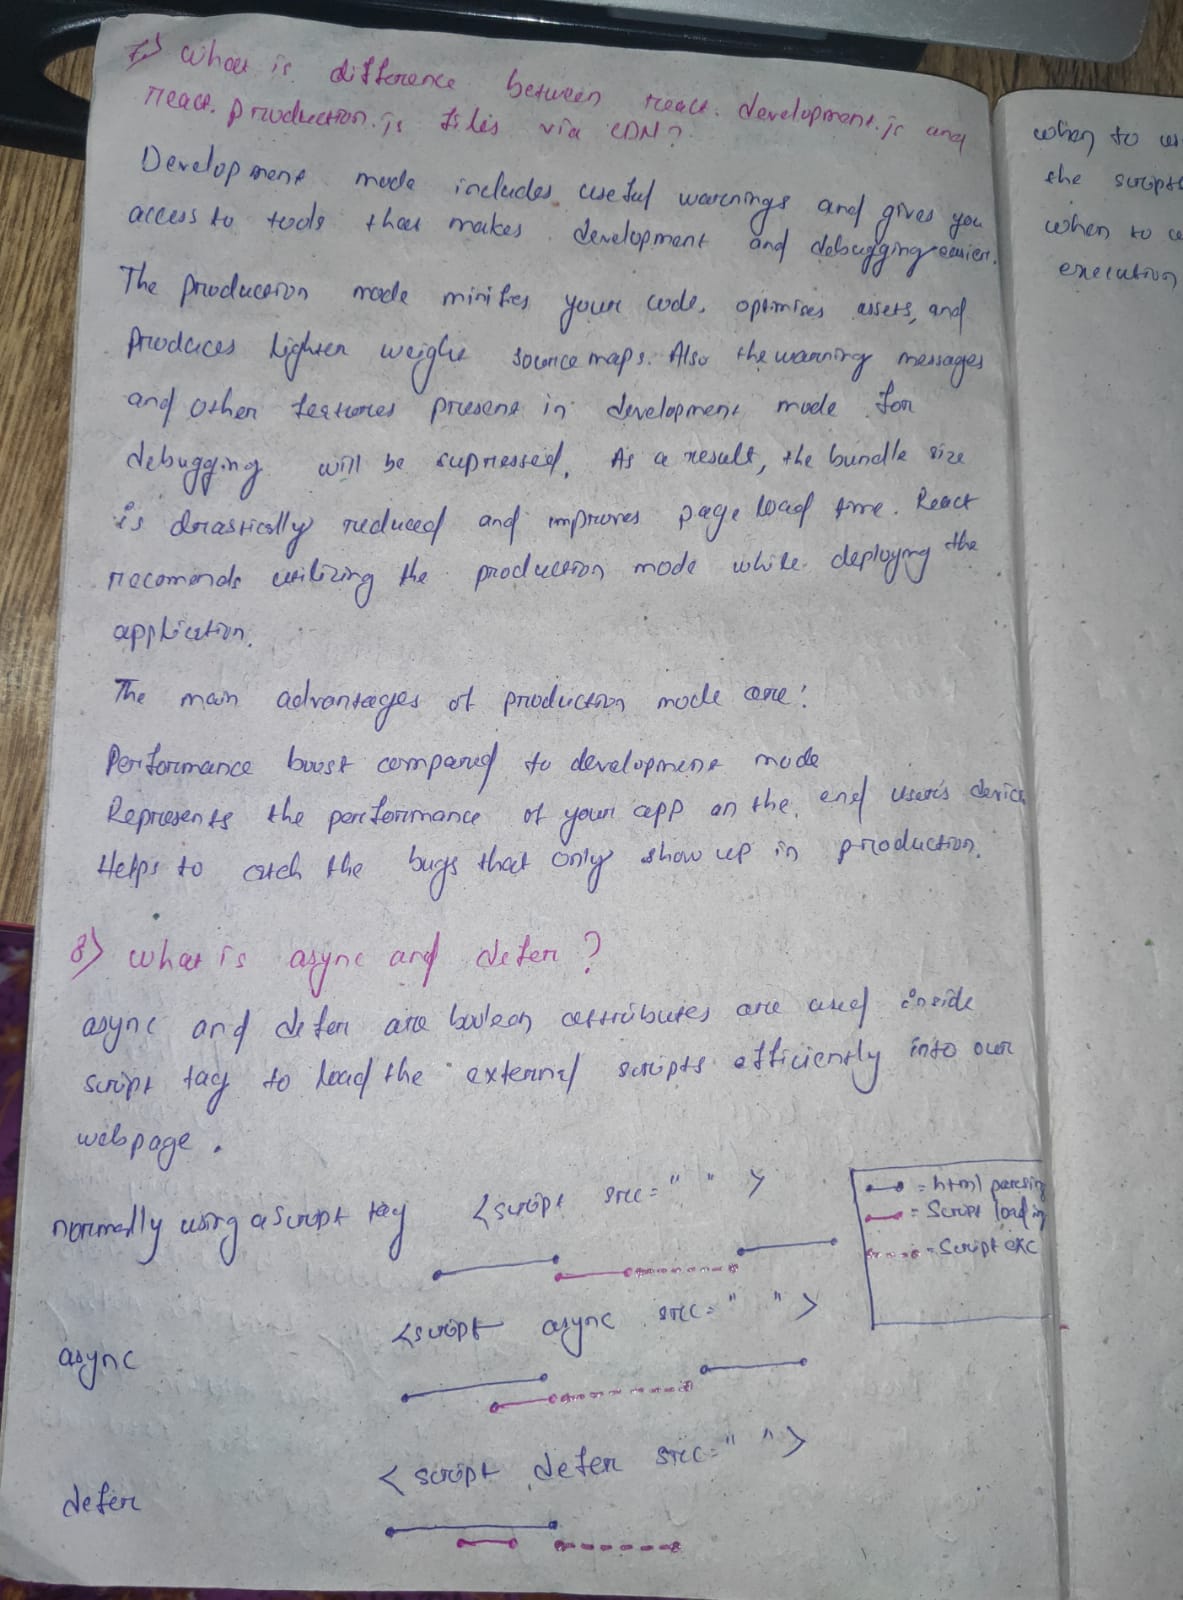 7) What is difference between react.development.js and
react.production.js files via CDN?
Development mode includes useful warnings and gives you
access to tools that makes development and debugging easier.
The production mode minifies your code, optimises assets, and
produces lighter weight source maps. Also the warning messages
and other features present in development mode for
debugging will be supressed. As a result, the bundle size
is drastically reduced and improves page load time. React
recomends utilizing the production mode while deploying the
application.
The main advantages of production mode are:
Performance boost compared to development mode
Represents the performance of your app on the end user's device
Helps to catch the bugs that only show up in production.
8) what is async and defer?
async and defer are boolean attributes are used inside
script tag to load the external scripts efficiently into our
webpage.
normally using a script tag <script src=" " >
= html parsing
= Script loading
= Script exc
<script async src=" ">
async
<script defer src=" ">
defer
when to
the scripts
when to
execution